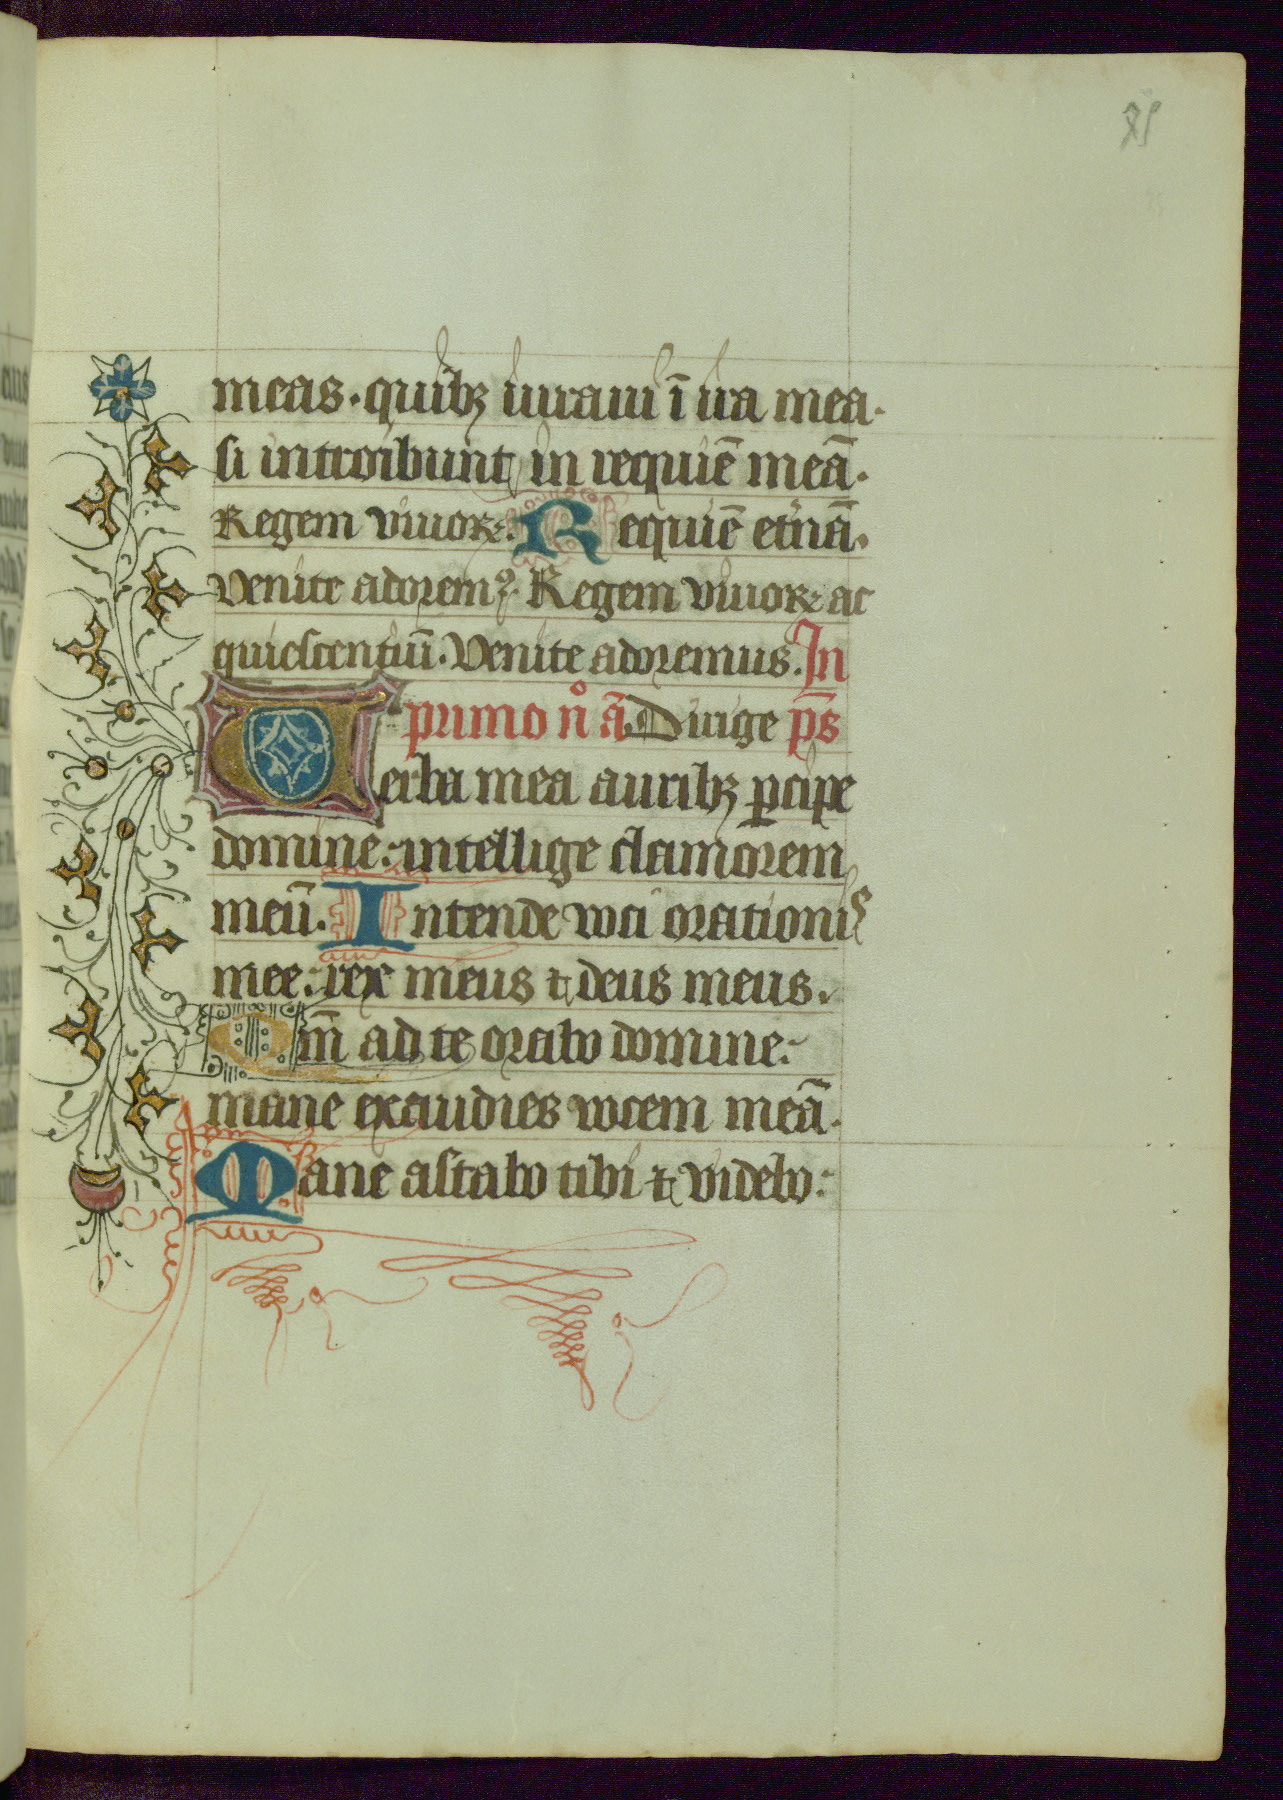 meas. quibꝫ iuraui ī ira mea.
si introibunt in requiē meā.
Regem viuoꝝ. Requiē et'nā.
Venite adoremꝰ. Regem viuoꝝ ac
quiescentiū. Venite adoremus. In
primo nº ā Dirige ps̄
Verba mea auribꝫ ꝑcipe
domine: intellige clamorem
meū. Intende voci orationis
mee: rex meus ⁊ deus meus.
Qm̄ ad te orabo domine:
mane exaudies vocem meā.
Mane astabo tibi ⁊ videbo: